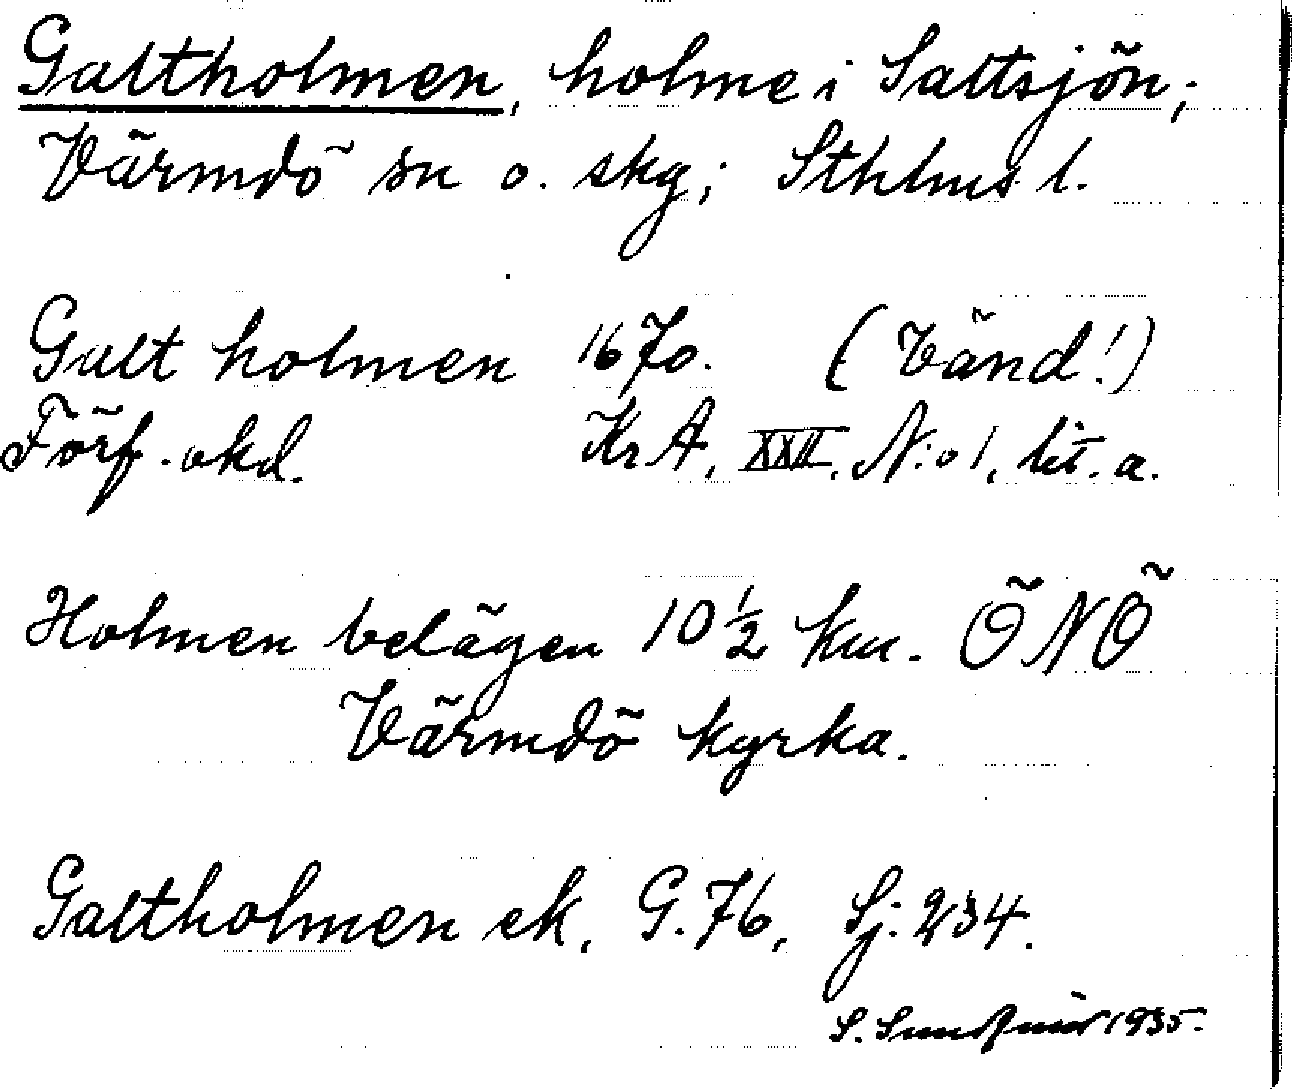 Galtholmen, holme i Saltsjön;
Värmdö sn o. skg; Sthlms l.
Galt holmen 1670. (Vänd!)
Förf. okd. KrA, XXII, N:o 1, lit. a.
Holmen belägen 10 1/2 km. ÖNÖ
Värmdö kyrka.
Galtholmen ek. G. 76, Sj: 234.
S. 1935.